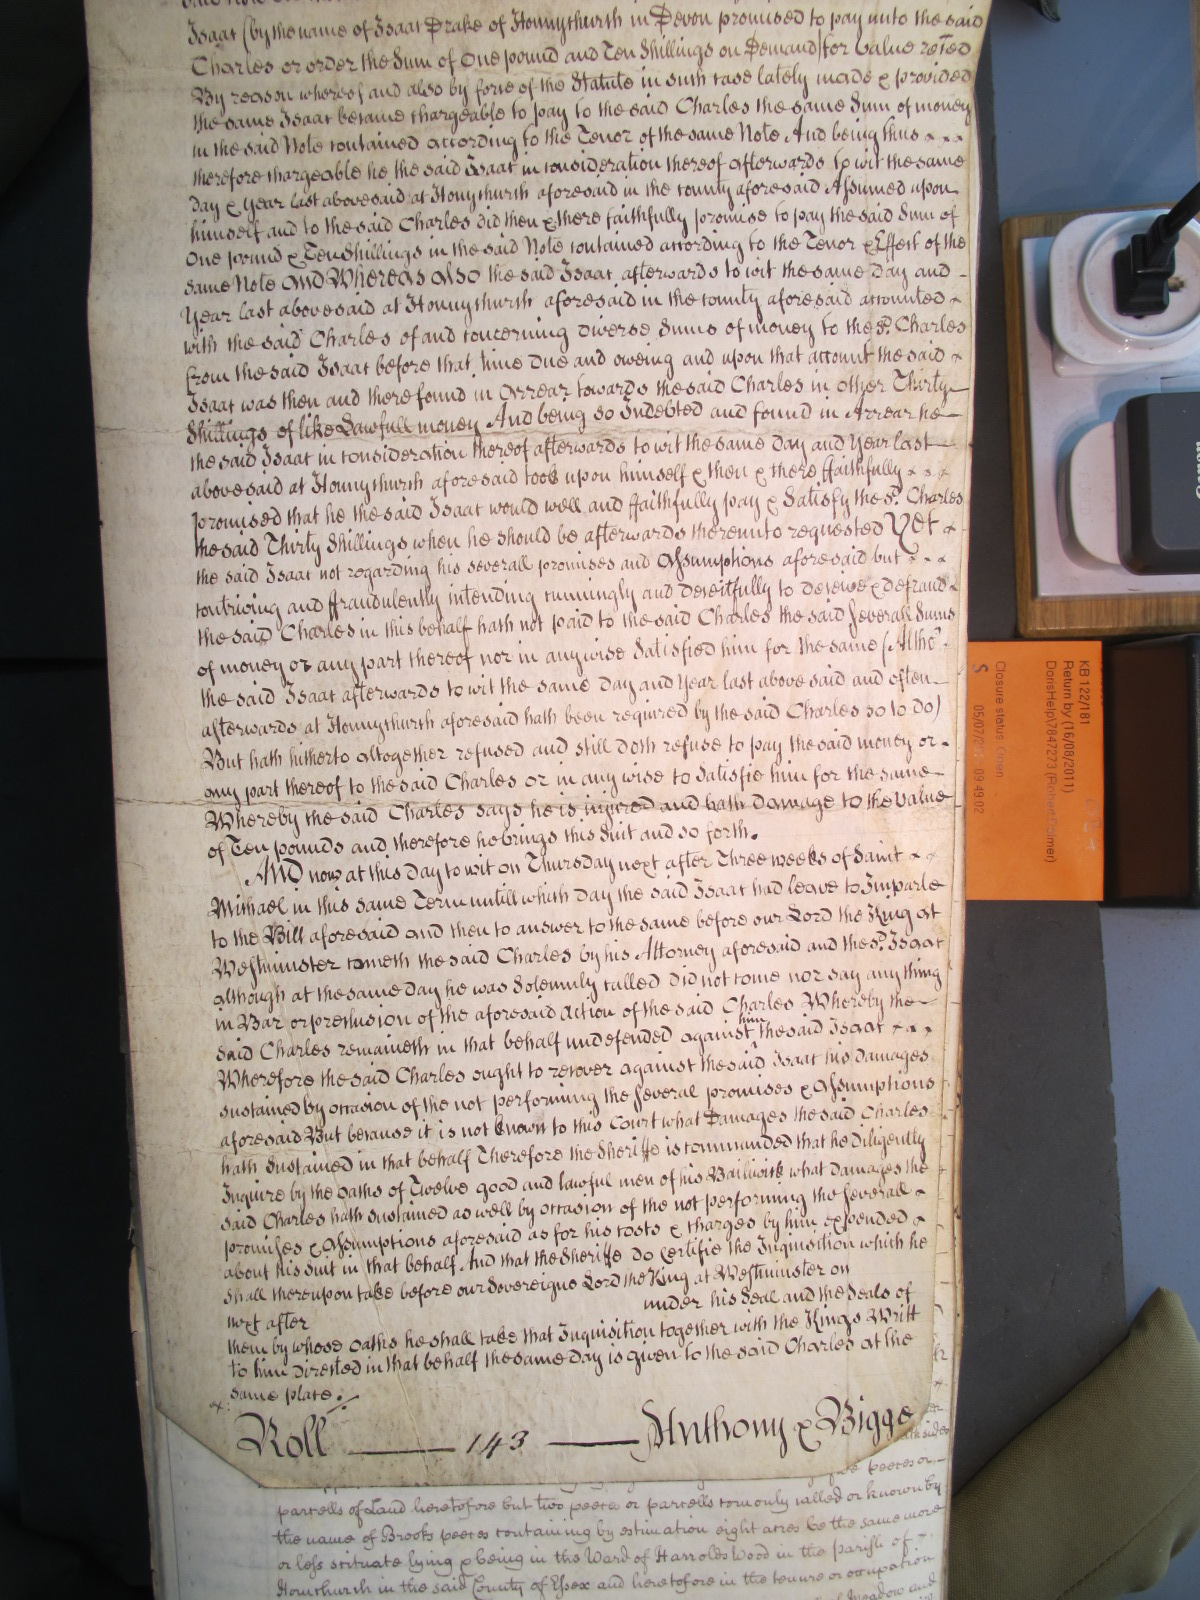 Isaac (by the name of Isaac Drake of Honnychurch in Devon promised to pay unto the said
Charles or order the Sum of One pound and Ten Shillings on Demand for value reced
By reason whereof and also by force of the Statute in such case lately made & provided
the same Isaac became chargeable to pay to the said Charles the same Sum of money
in the said Note contained according to the Tenor of the same Note And being thus
therefore chargeable he the said Isaac in consideration thereof afterwards to wit the same
day & year last abovesaid at Honychurch aforesaid in the county aforesaid Assumed upon
himself and to the said Charles did then & there faithfully promise to pay the said Sum of
One pound & Ten Shillings in the said Note contained according to the Tenor & Effect of the
same Note And Whereas also the said Isaac afterwards to wit the same day and
Year last abovesaid at Honnychurch aforesaid in the county aforesaid accounted
with the said Charles of and concerning diverse Sums of money to the sd. Charles
from the said Isaac before that time due and oweing and upon that account the said
Isaac was then and there found in Arrear towards the said Charles in other Thirty
Shillings of like Lawfull money And being so Indebted and found in Arrear he
the said Isaac in consideration thereof afterwards to wit the same day and Year last
abovesaid at Honnychurch aforesaid took upon himself & then & there ffaithfully
promised that he the said Isaac would well and ffaithfully pay & Satisfy the sd. Charles
the said Thirty Shillings when he should be afterwards thereunto requested Yet
the said Isaac not regarding his severall promises and Assumptions aforesaid but
contriving and ffraudulently intending cunningly and deceitfully to deceive & defraud
the said Charles in this behalf hath not paid to the said Charles the said severall Sums
of money or any part thereof nor in any wise Satisfied him for the same (Altho'
the said Isaac afterwards to wit the same day and Year last above said and often
afterwards at Honnychurch aforesaid hath been required by the said Charles so to do)
But hath hitherto altogether refused and still doth refuse to pay the said money or
any part thereof to the said Charles or in any wise to Satisfie him for the same
Whereby the said Charles says he is injured and hath Damage to the value
of Ten pounds and therefore he brings this Suit and so forth.
And now at this day to wit on Thursday next after Three weeks of Saint
Michael in this same Term untill which day the said Isaac had leave to Imparle
to the Bill aforesaid and then to answer to the same before our Lord the King at
Westminster cometh the said Charles by his Attorney aforesaid and the sd. Isaac
although at the same day he was Solemnly called did not come nor say any thing
in Bar or preclusion of the aforesaid Action of the said Charles Whereby the
said Charles remaineth in that behalf undefended against him the said Isaac
Wherefore the said Charles ought to recover against the said Isaac his Damages
sustained by occasion of the not performing the several promises & Assumptions
aforesaid But because it is not known to this Court what Damages the said Charles
hath Sustained in that behalf Therefore the Sheriffe is commanded that he Diligently
Inquire by the oaths of Twelve good and lawful men of his Bailiwick what damages the
said Charles hath sustained as well by occasion of the not performing the severall
promises & Assumptions aforesaid as for his costs & charges by him expended
about his suit in that behalf. And that the Sheriffe do Certifie the Inquisition which he
shall thereupon take before our Sovereigne Lord the King at Westminster on
next after under his Seal and the Seals of
them by whose oaths he shall take that Inquisition together with the Kings Writt
to him directed in that behalf the same day is given to the said Charles at the
same place.
Roll 143 Anthony & Bigge
parcells of Land heretofore but two peeces or parcells comonly called or known by
the name of Brooks peeces containing by estimation eight acres be the same more
or less scituate lying & being in the Ward of Harrolds Wood in the parish of
Hornchurch in the said County of Essex and heretofore in the tenure or occupation
Meadow and
KB 122/181
Return by (16/08/2011)
DorisHelp\7847273
Closure status: Open
05/07/2 09:49:02
S
Canon